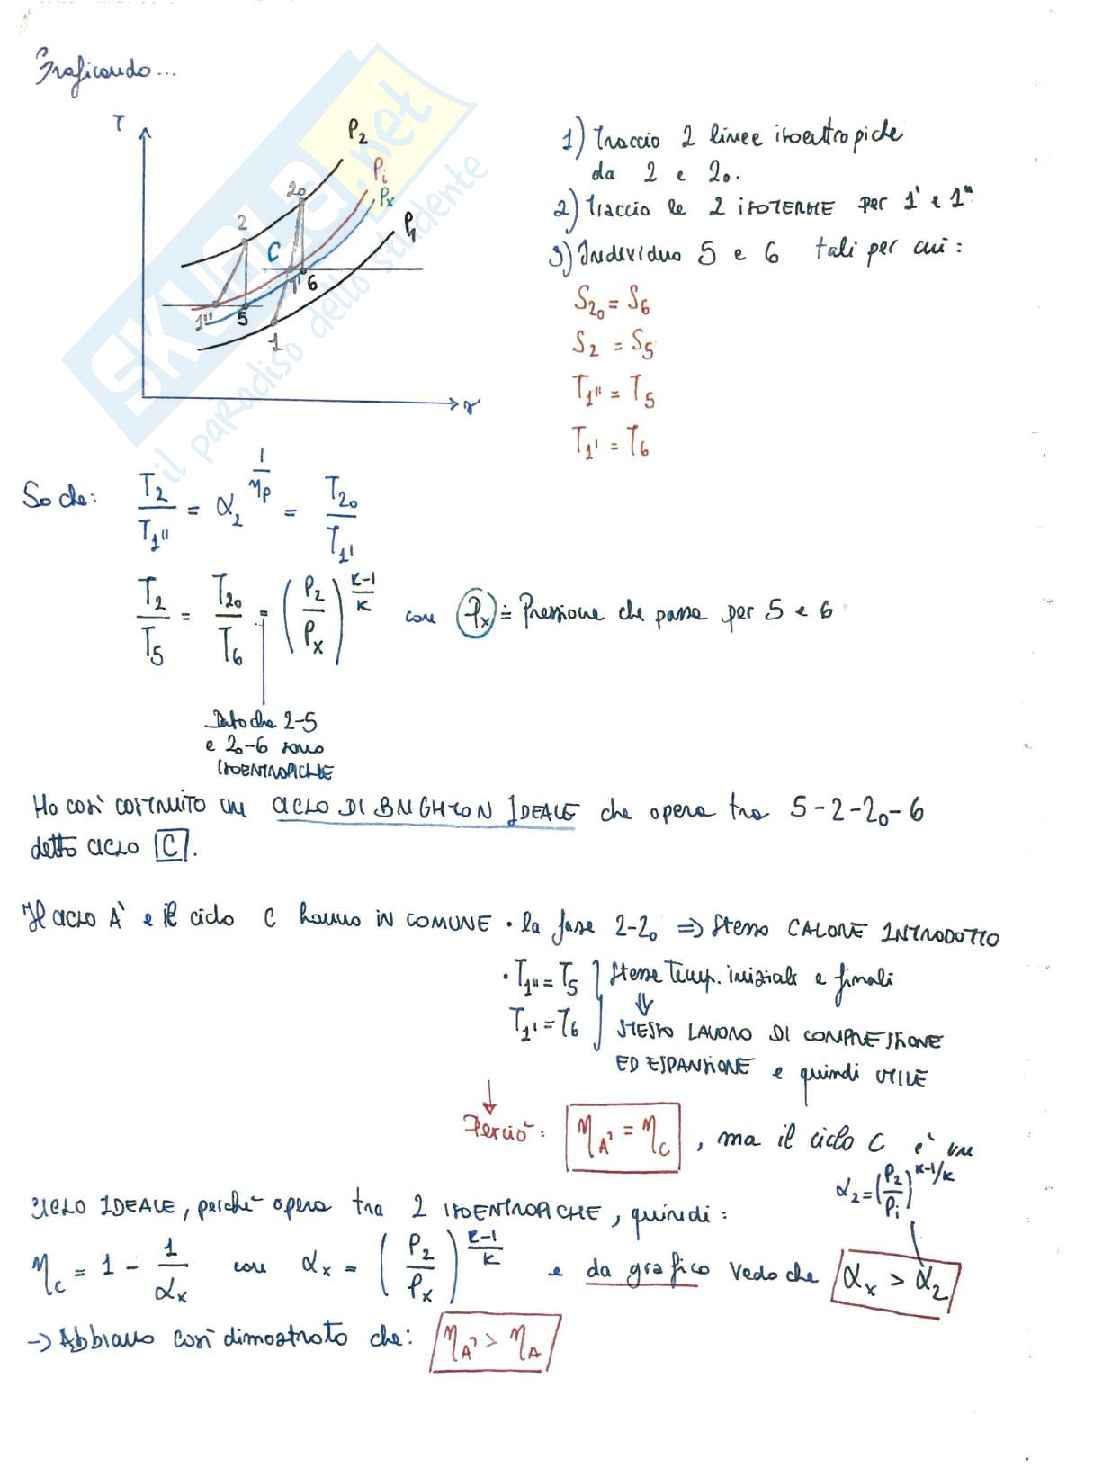 Graficando...
T
P₂
Pᵢ
Pₓ
P₁
2
2₀
C
1'
6
1''
5
1
1) Traccio 2 linee isoentropiche
da 2 e 2₀.
2) Traccio le 2 ISOTERME per 1' e 1''
3) Individuo 5 e 6 tali per cui:
S₂₀ = S₆
S₂ = S₅
T₁'' = T₅
T₁' = T₆
So che: T₂/T₁'' = α₂^(1/ηp) = T₂₀/T₁'
T₂/T₅ = T₂₀/T₆ = (P₂/Pₓ)^((K-1)/K) con Pₓ ≐ Pressione che passa per 5 e 6
Dato che 2-5
e 2₀-6 sono
ISOENTROPICHE
Ho così COSTRUITO un CICLO DI BRIGHTON IDEALE che opera tra 5-2-2₀-6
detto CICLO C.
Il CICLO A' e il ciclo C hanno IN COMUNE • la fase 2-2₀ ⇒ Stesso CALORE INTRODOTTO
• T₁'' = T₅ } Stesse Temp. iniziali e finali
T₁' = T₆ ⇓ STESSO LAVORO DI COMPRESSIONE
ED ESPANSIONE e quindi UTILE
↓
Perciò: η_A' = η_C , ma il ciclo C è un
α₂ = (P₂/Pᵢ)^(K-1/K)
CICLO IDEALE, perchè opera tra 2 ISOENTROPICHE, quindi:
η_C = 1 - 1/αₓ con αₓ = (P₂/Pₓ)^((K-1)/K) e da grafico vedo che αₓ > α₂
→ Abbiamo così dimostrato che: η_A' > η_A
SKUOLA.net
il paradiso dello studente